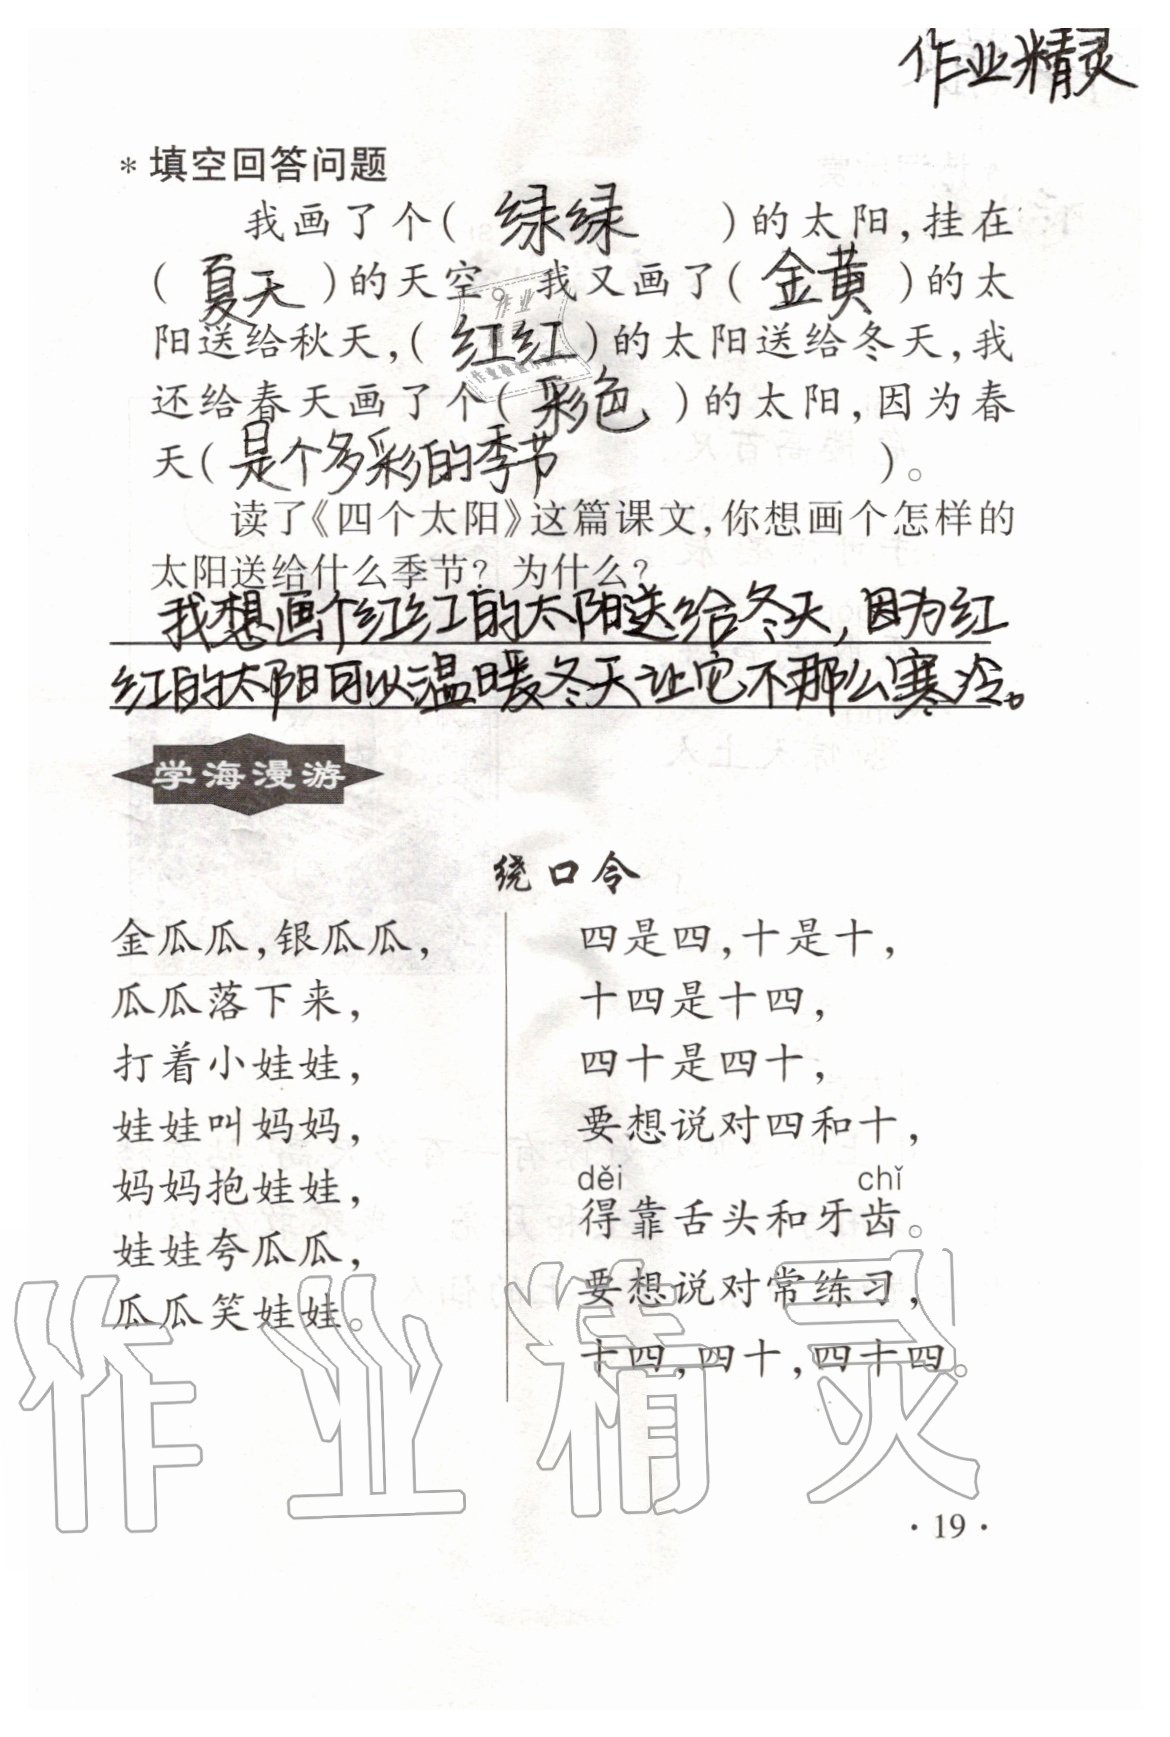 作业精灵
*填空回答问题
我画了个( 绿绿 )的太阳,挂在
( 夏天 )的天空。我又画了( 金黄 )的太
阳送给秋天,( 红红 )的太阳送给冬天,我
还给春天画了个( 彩色 )的太阳,因为春
天( 是个多彩的季节 )。
读了《四个太阳》这篇课文,你想画个怎样的
太阳送给什么季节?为什么?
我想画个红红的太阳送给冬天,因为红
红的太阳可以温暖冬天让它不那么寒冷。
学海漫游
绕口令
金瓜瓜,银瓜瓜,
瓜瓜落下来,
打着小娃娃,
娃娃叫妈妈,
妈妈抱娃娃,
娃娃夸瓜瓜,
瓜瓜笑娃娃。
四是四,十是十,
十四是十四,
四十是四十,
要想说对四和十,
děi chǐ
得靠舌头和牙齿。
要想说对常练习,
十四,四十,四十四。
作业精灵
·19·